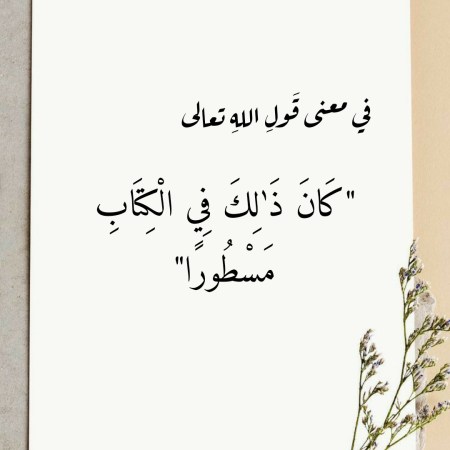 في معنى قَولِ اللهِ تعالى
"كَانَ ذَٰلِكَ فِي الْكِتَابِ
مَسْطُورًا"